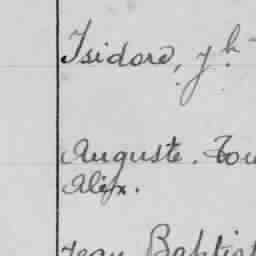 Isidore, Jh
Auguste. Tou
Alix.
Jean Baptist